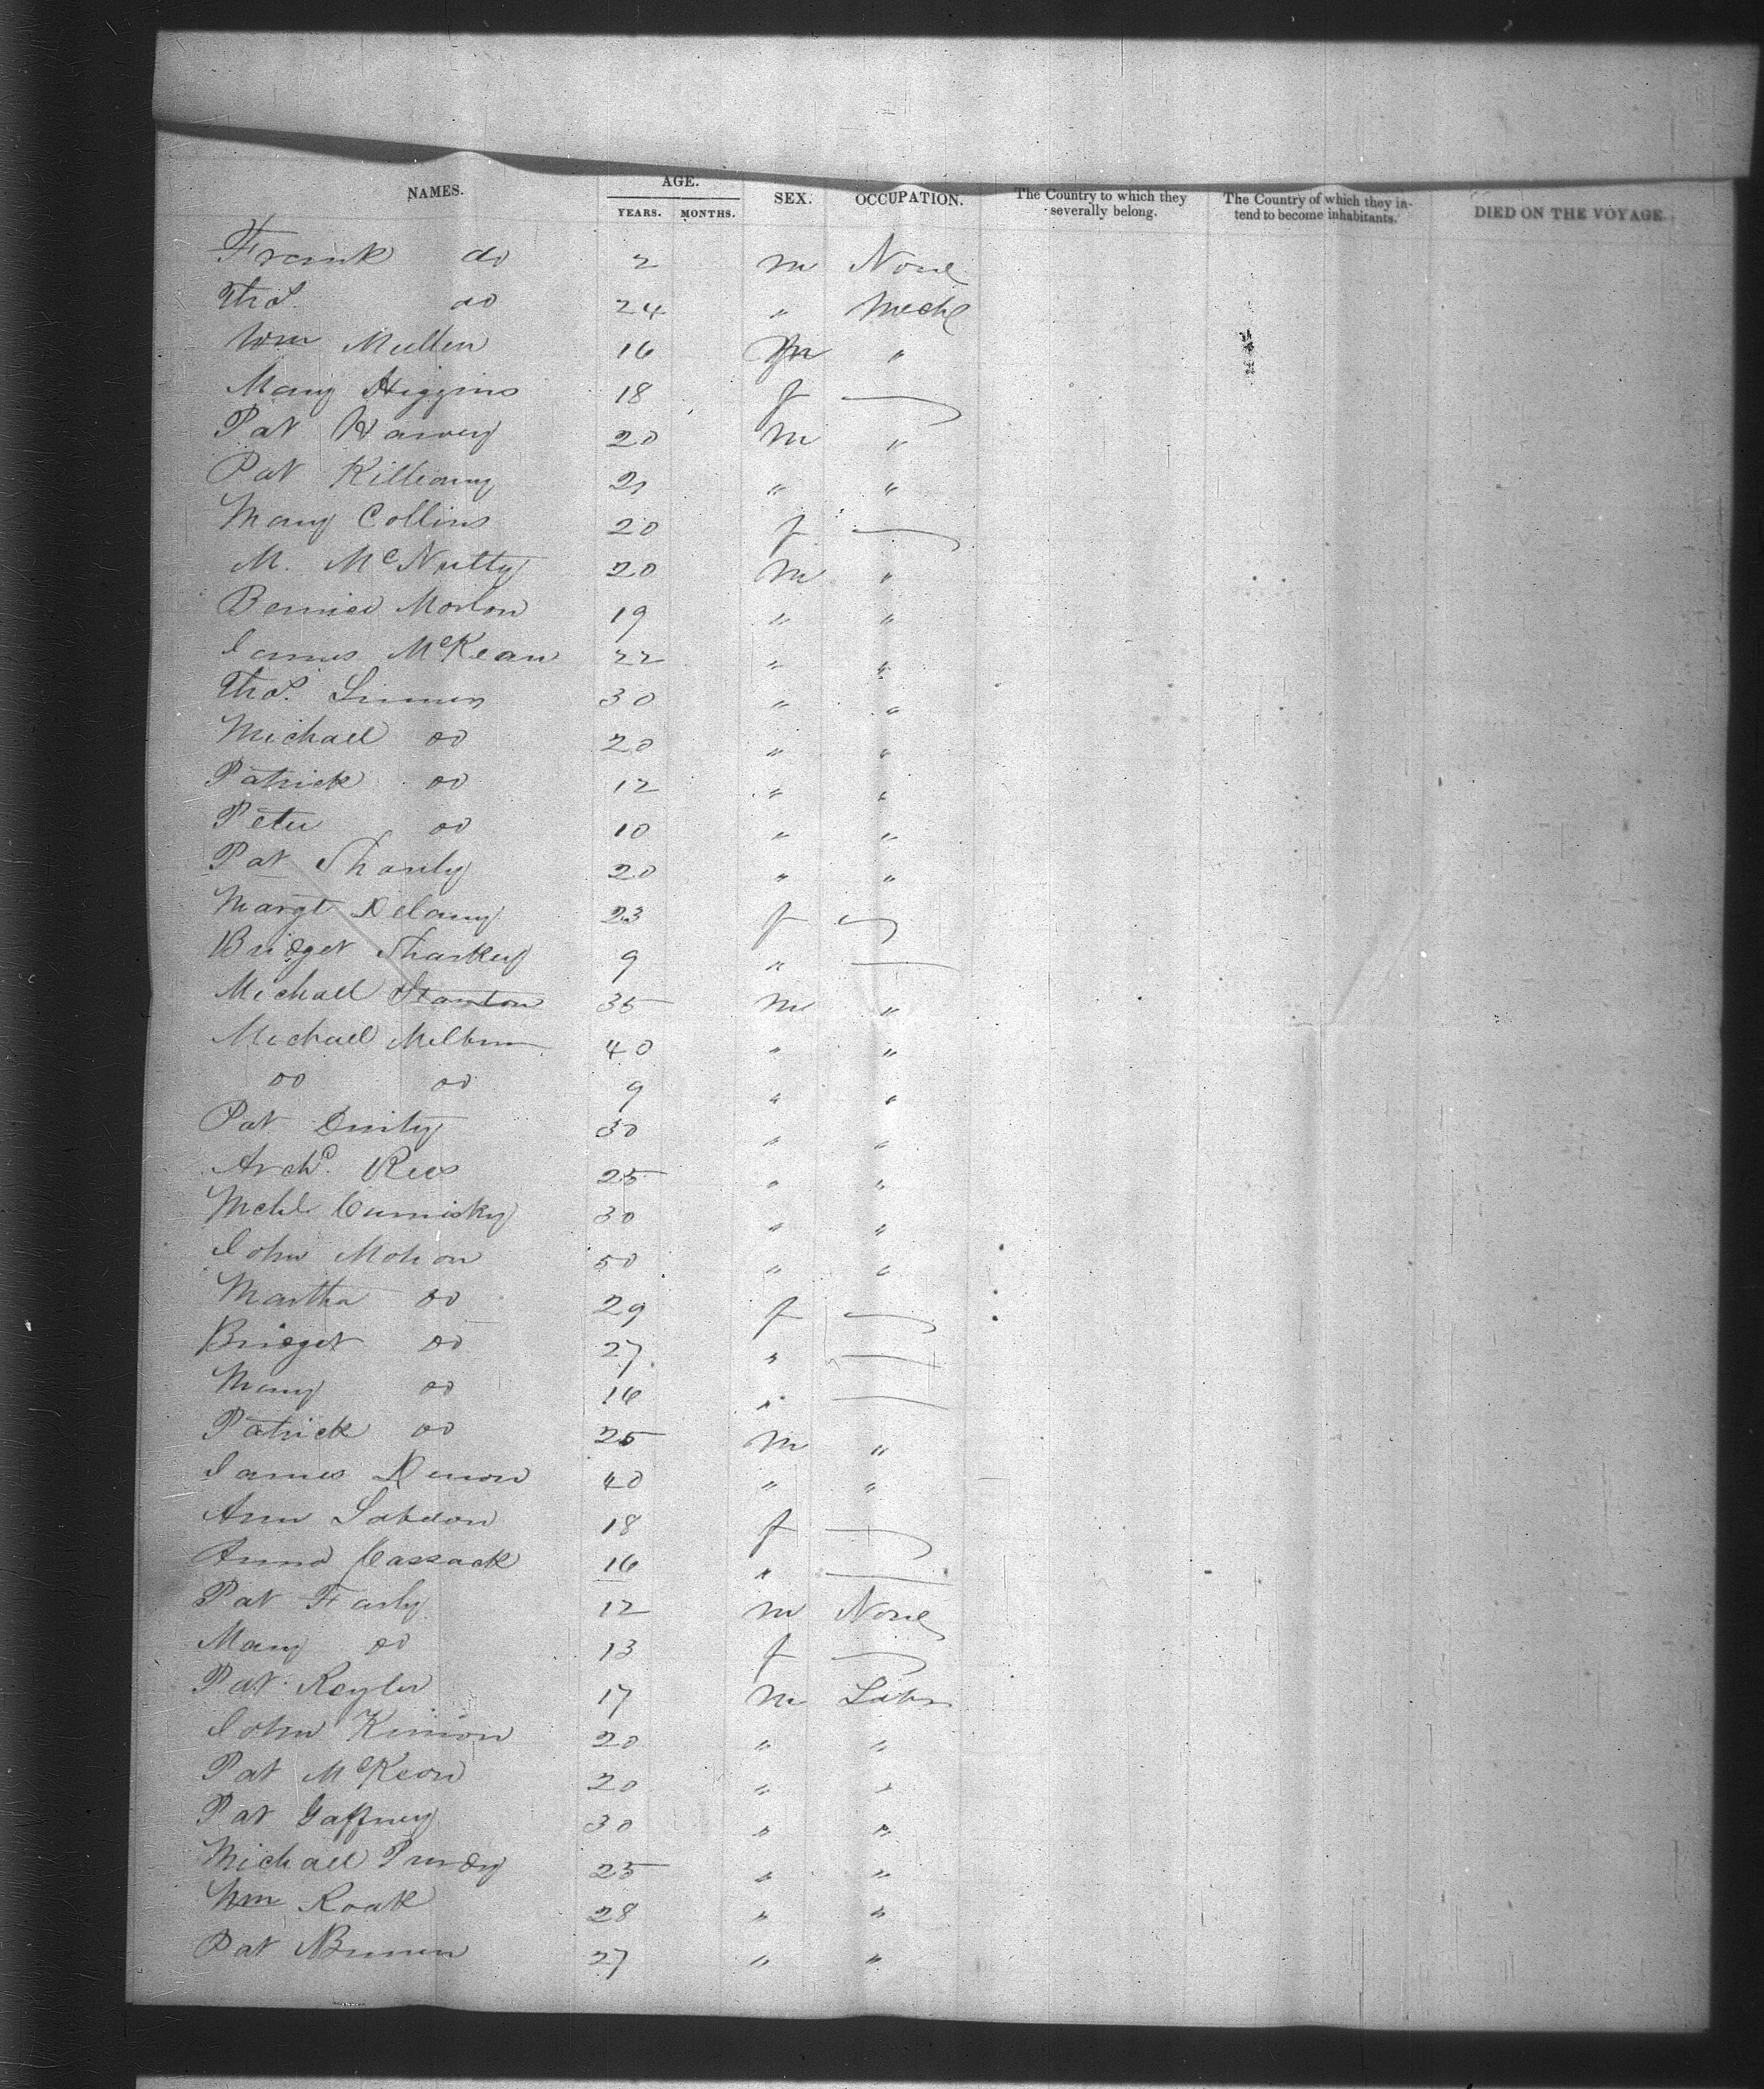 NAMES. AGE. SEX. OCCUPATION. The Country to which they severally belong. The Country of which they intend to become inhabitants. DIED ON THE VOYAGE.
YEARS. MONTHS.
Frank do 2 m None
Thos. do 24 " Mechc
Wm Mullen 16 m "
Mary Higgins 18 f —
Pat Harvey 20 m "
Pat Killeany 21 " "
Mary Collins 20 f —
M. McNulty 20 m "
Morton 19 " "
James McKean 22 " "
Thos. 30 " "
Michael do 20 " "
Patrick do 12 " "
Peter do 10 " "
Pat Shanly 20 " "
Margt Delany 23 f —
Bridget Sharkey 9 " —
Michael Stanton 35 m "
Michael 40 " "
do do 9 " "
Pat 30 " "
Archd. Rees 25 " "
Michl Cumisky 30 " "
John Mohon 50 " "
Martha do 29 f —
Bridget do 27 " —
Mary do 16 " —
Patrick do 25 m "
James 40 " "
Ann 18 f —
Anna Cassack 16 " —
Pat Farly 12 m None
Mary do 13 f —
Pat 17 m Labr
John 20 " "
Pat McKeon 20 " "
Pat Gaffney 30 " "
Michael Purdy 25 " "
Wm Roak 28 " "
Pat 27 " "